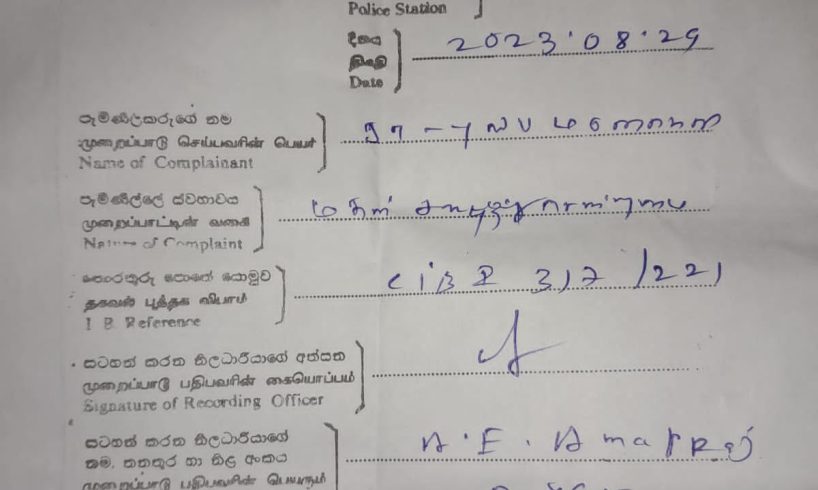 Police Station
දිනය
திகதி
Date
2023.08.29
පැමිණිලිකරුගේ නම
முறைப்பாடு செய்பவரின் பெயர்
Name of Complainant
පැමිණිල්ලේ ස්වභාවය
முறைப்பாட்டின் வகை
Nature of Complaint
மகள்
තොරතුරු පොතේ යොමුව
தகவல் புத்தக விபரம்
I B Reference
CIB I 317/221
සටහන් කරන නිලධාරියාගේ අත්සන
முறைப்பாடு பதிபவரின் கையொப்பம்
Signature of Recording Officer
සටහන් කරන නිලධාරියාගේ
නම, තනතුර හා නිල අංකය
முறைப்பாடு பதிபவரின் பெயரும்